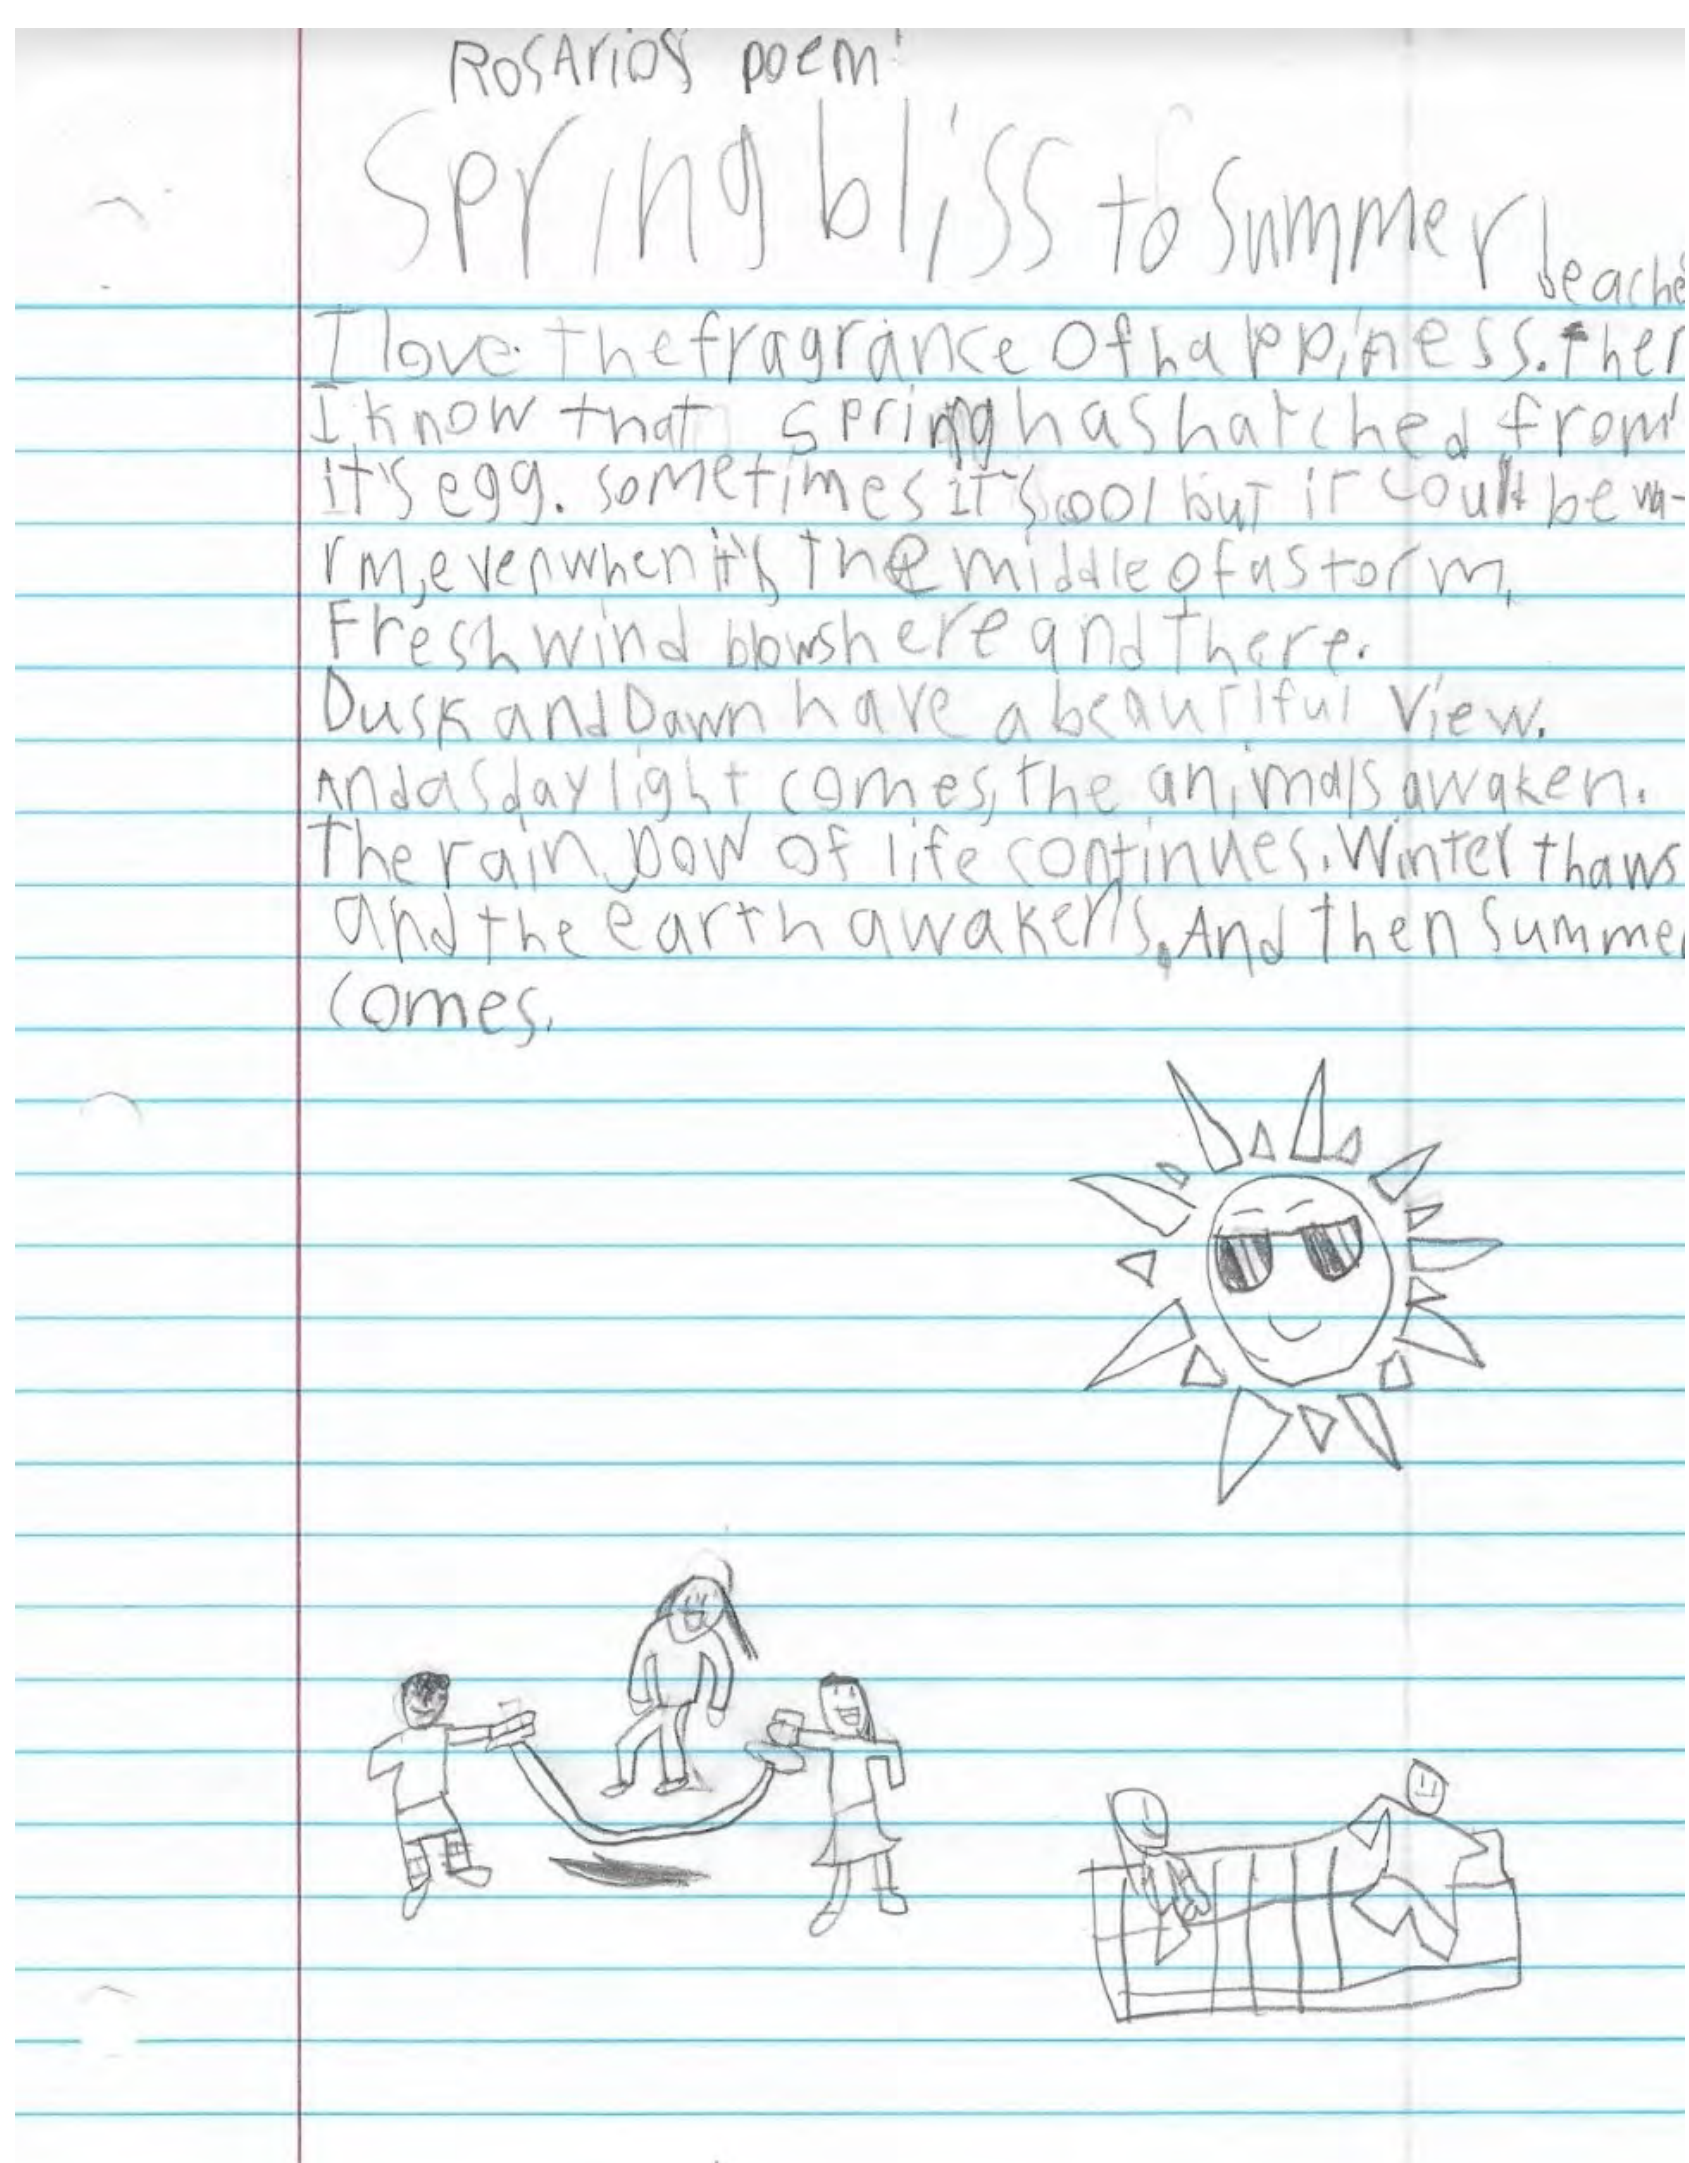 Rosario's poem!
Spring bliss to Summer beache
I love the fragrance of happiness. then
I know that spring has hatched from
it's egg. sometimes it's cool but it could be wa-
rm, even when it's the middle of a storm.
Fresh wind blows here and there.
Dusk and Dawn have a beautiful view.
And as daylight comes, the animals awaken.
The rainbow of life continues. Winter thaws
and the earth awakens. And then Summer
comes.